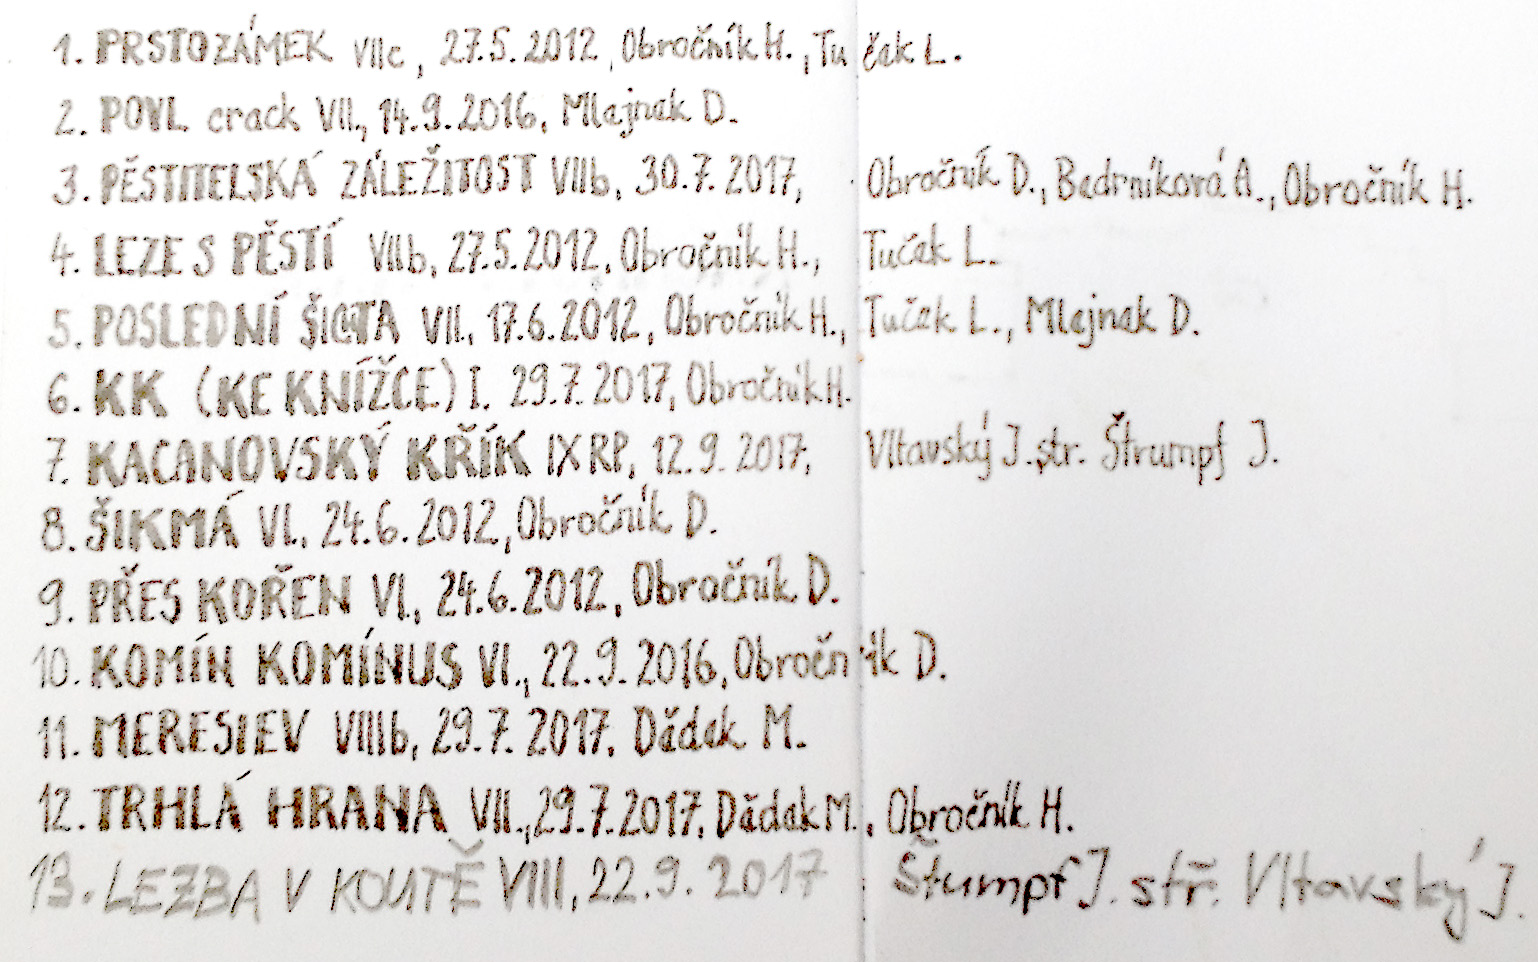 1. PRSTOZÁMEK VIIc, 27.5.2012, Obročník H., Tuček L.
2. POVL crack VII, 14.9.2016, Mlejnek D.
3. PĚSTITELSKÁ ZÁLEŽITOST VIIIb, 30.7.2017, Obročník D., Bedrníková A., Obročník H.
4. LEZE S PĚSTÍ VIIb, 27.5.2012, Obročník H., Tuček L.
5. POSLEDNÍ VII, 17.6.2012, Obročník H., Tuček L., Mlejnek D.
6. KK (KE KNÍŽCE) I. 29.7.2017, Obročník H.
7. KACANOVSKÝ KŘÍK IX RP, 12.9.2017, Vltavský J. str. Štrumpf J.
8. ŠIKMÁ VI, 24.6.2012, Obročník D.
9. PŘES KOŘEN VI, 24.6.2012, Obročník D.
10. KOMÍN KOMÍNUS VI., 22.9.2016, Obročník D.
11. MERESIEV VIIIb, 29.7.2017, Dädek M.
12. TRHLÁ HRANA VII., 29.7.2017, Dädek M., Obročník H.
13. LEZBA V KOUTĚ VIII, 22.9.2017 Štumpf J. stř. Vltavský J.